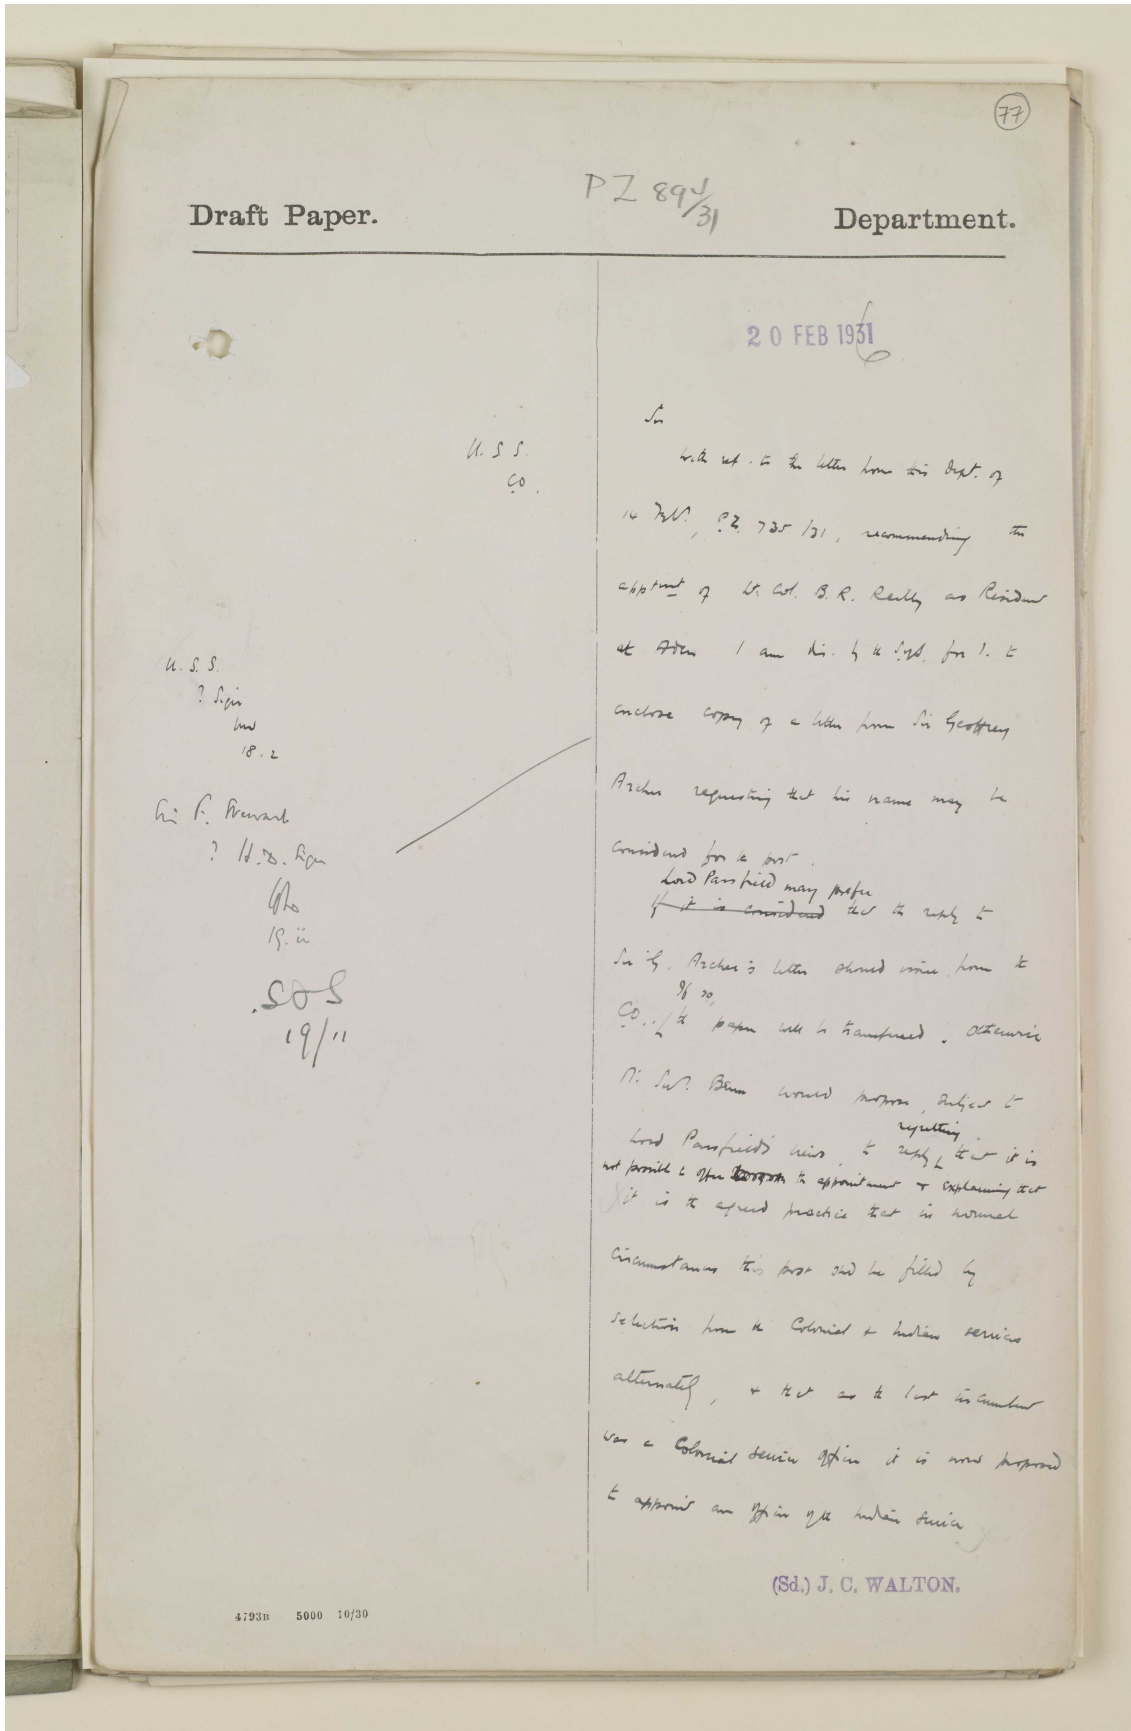 77
PZ 894/31
Draft Paper.
Department.
20 FEB 1931
U. S. S.
C.O.
Sir
With ref. to the letter from this Dept. of
14 Feb., P.Z. 735/31, recommending the
apptment of Lt. Col. B. R. Reilly as Resident
at Aden I am dir. by the S. of S. for I. to
enclose copy of a letter from Sir Geoffrey
Archer requesting that his name may be
considered for the post.
Lord Passfield may prefer
If it is considered that the reply to
Sir G. Archer's letter should issue from the
If so,
C.O., the paper will be transferred. Otherwise
Mr. Secy. Benn would propose, subject to
regretting
Lord Passfield's views, to reply that it is
not possible to offer the appointment & explaining that
it is the agreed practice that in normal
circumstances this post shd be filled by
selection from the Colonial & Indian services
alternately, & that as the last incumbent
was a Colonial service officer it is now proposed
to appoint an officer of the Indian service
(Sd.) J. C. WALTON.
U. S. S.
? Sign
18.2
Sir F. Stewart
? H.B. Sign
19.ii
SFS
19/11
4793B 5000 10/30